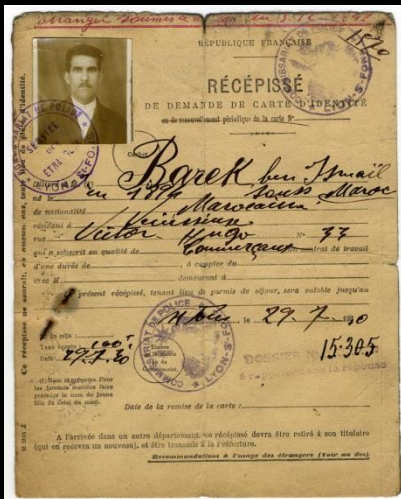 Etranger soumis
1570
RÉPUBLIQUE FRANÇAISE
RÉCÉPISSÉ
DE DEMANDE DE CARTE D'IDENTITÉ
ou de renouvellement périodique de la carte N°
Barek ben Ismaïl
né le en 1899 Souss Maroc
de nationalité Marocaine
résidant à Vénissieux
rue Victor Hugo N° 37
qui a souscrit en qualité de Commerçant contrat de travail
d'une durée de à compter du
avec M. demeurant à
présent récépissé, tenant lieu de permis de séjour, sera valable jusqu'au
, le 29.7.
COMMISSARIAT DE POLICE
Taxe 100
Date 29.7.30
DOSSIER N° 15.305
à rappeler dans la réponse
(1) Nom et prénoms. Pour
les femmes mariées faire
précéder le nom de jeune
fille de celui du mari.
Date de la remise de la carte :
A l'arrivée dans un autre département, un récépissé devra être retiré à son titulaire
(qui en recevra un nouveau), et être transmis à la Préfecture.
Recommandations à l'usage des étrangers (Voir au dos).
Ce récépissé ne saurait, en aucun cas, tenir lieu de pièce d'identité.